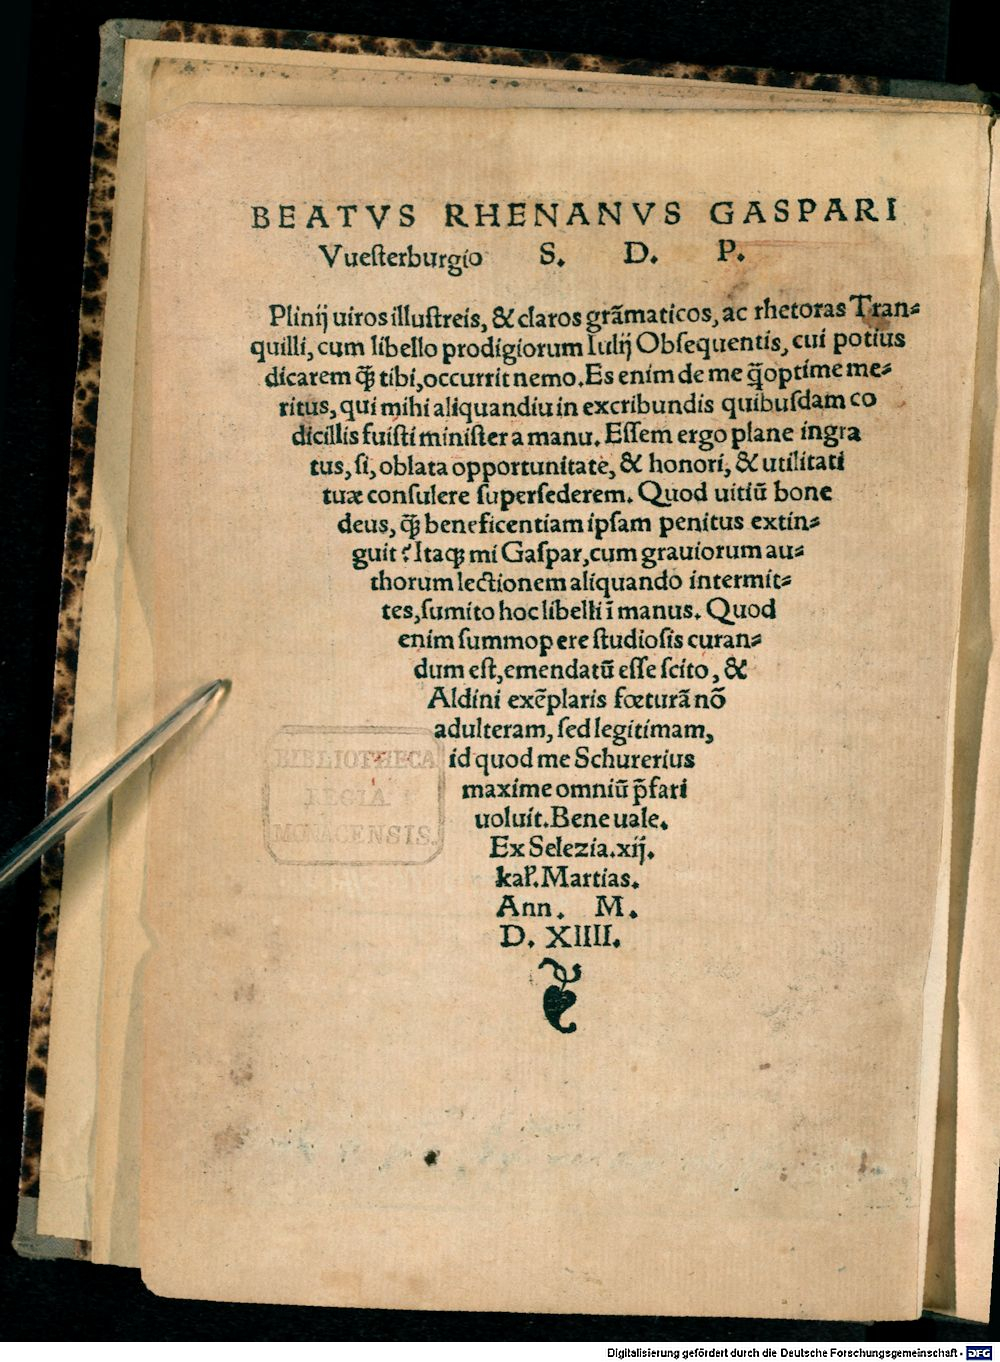 BEATVS RHENANVS GASPARI
Vuesterburgio S. D. P.
Plinij uiros illustreis, & claros grãmaticos, ac rhetoras Tran-
quilli, cum libello prodigiorum Iulij Obsequentis, cui potius
dicarem ꝙ̃ tibi, occurrit nemo. Es enim de me q̃optime me-
ritus, qui mihi aliquandiu in excribundis quibusdam co
dicillis fuisti minister a manu. Essem ergo plane ingra
tus, si, oblata opportunitate, & honori, & utilitati
tuæ consulere supersederem. Quod uitiũ bone
deus, ꝙ̃ beneficentiam ipsam penitus extin-
guit? Itaqꝫ mi Gaspar, cum grauiorum au-
thorum lectionem aliquando intermit-
tes, sumito hoc libelli ĩ manus. Quod
enim summopere studiosis curan-
dum est, emendatũ esse scito, &
Aldini exẽplaris fœturã nõ
adulteram, sed legitimam,
id quod me Schurerius
maxime omniũ p̃fari
uoluit. Bene uale.
Ex Selezia. xij.
kal. Martias.
Ann. M.
D. XIIII.
BIBLIOTHECA
REGIA
MONACENSIS.
Digitalisierung gefördert durch die Deutsche Forschungsgemeinschaft - DFG